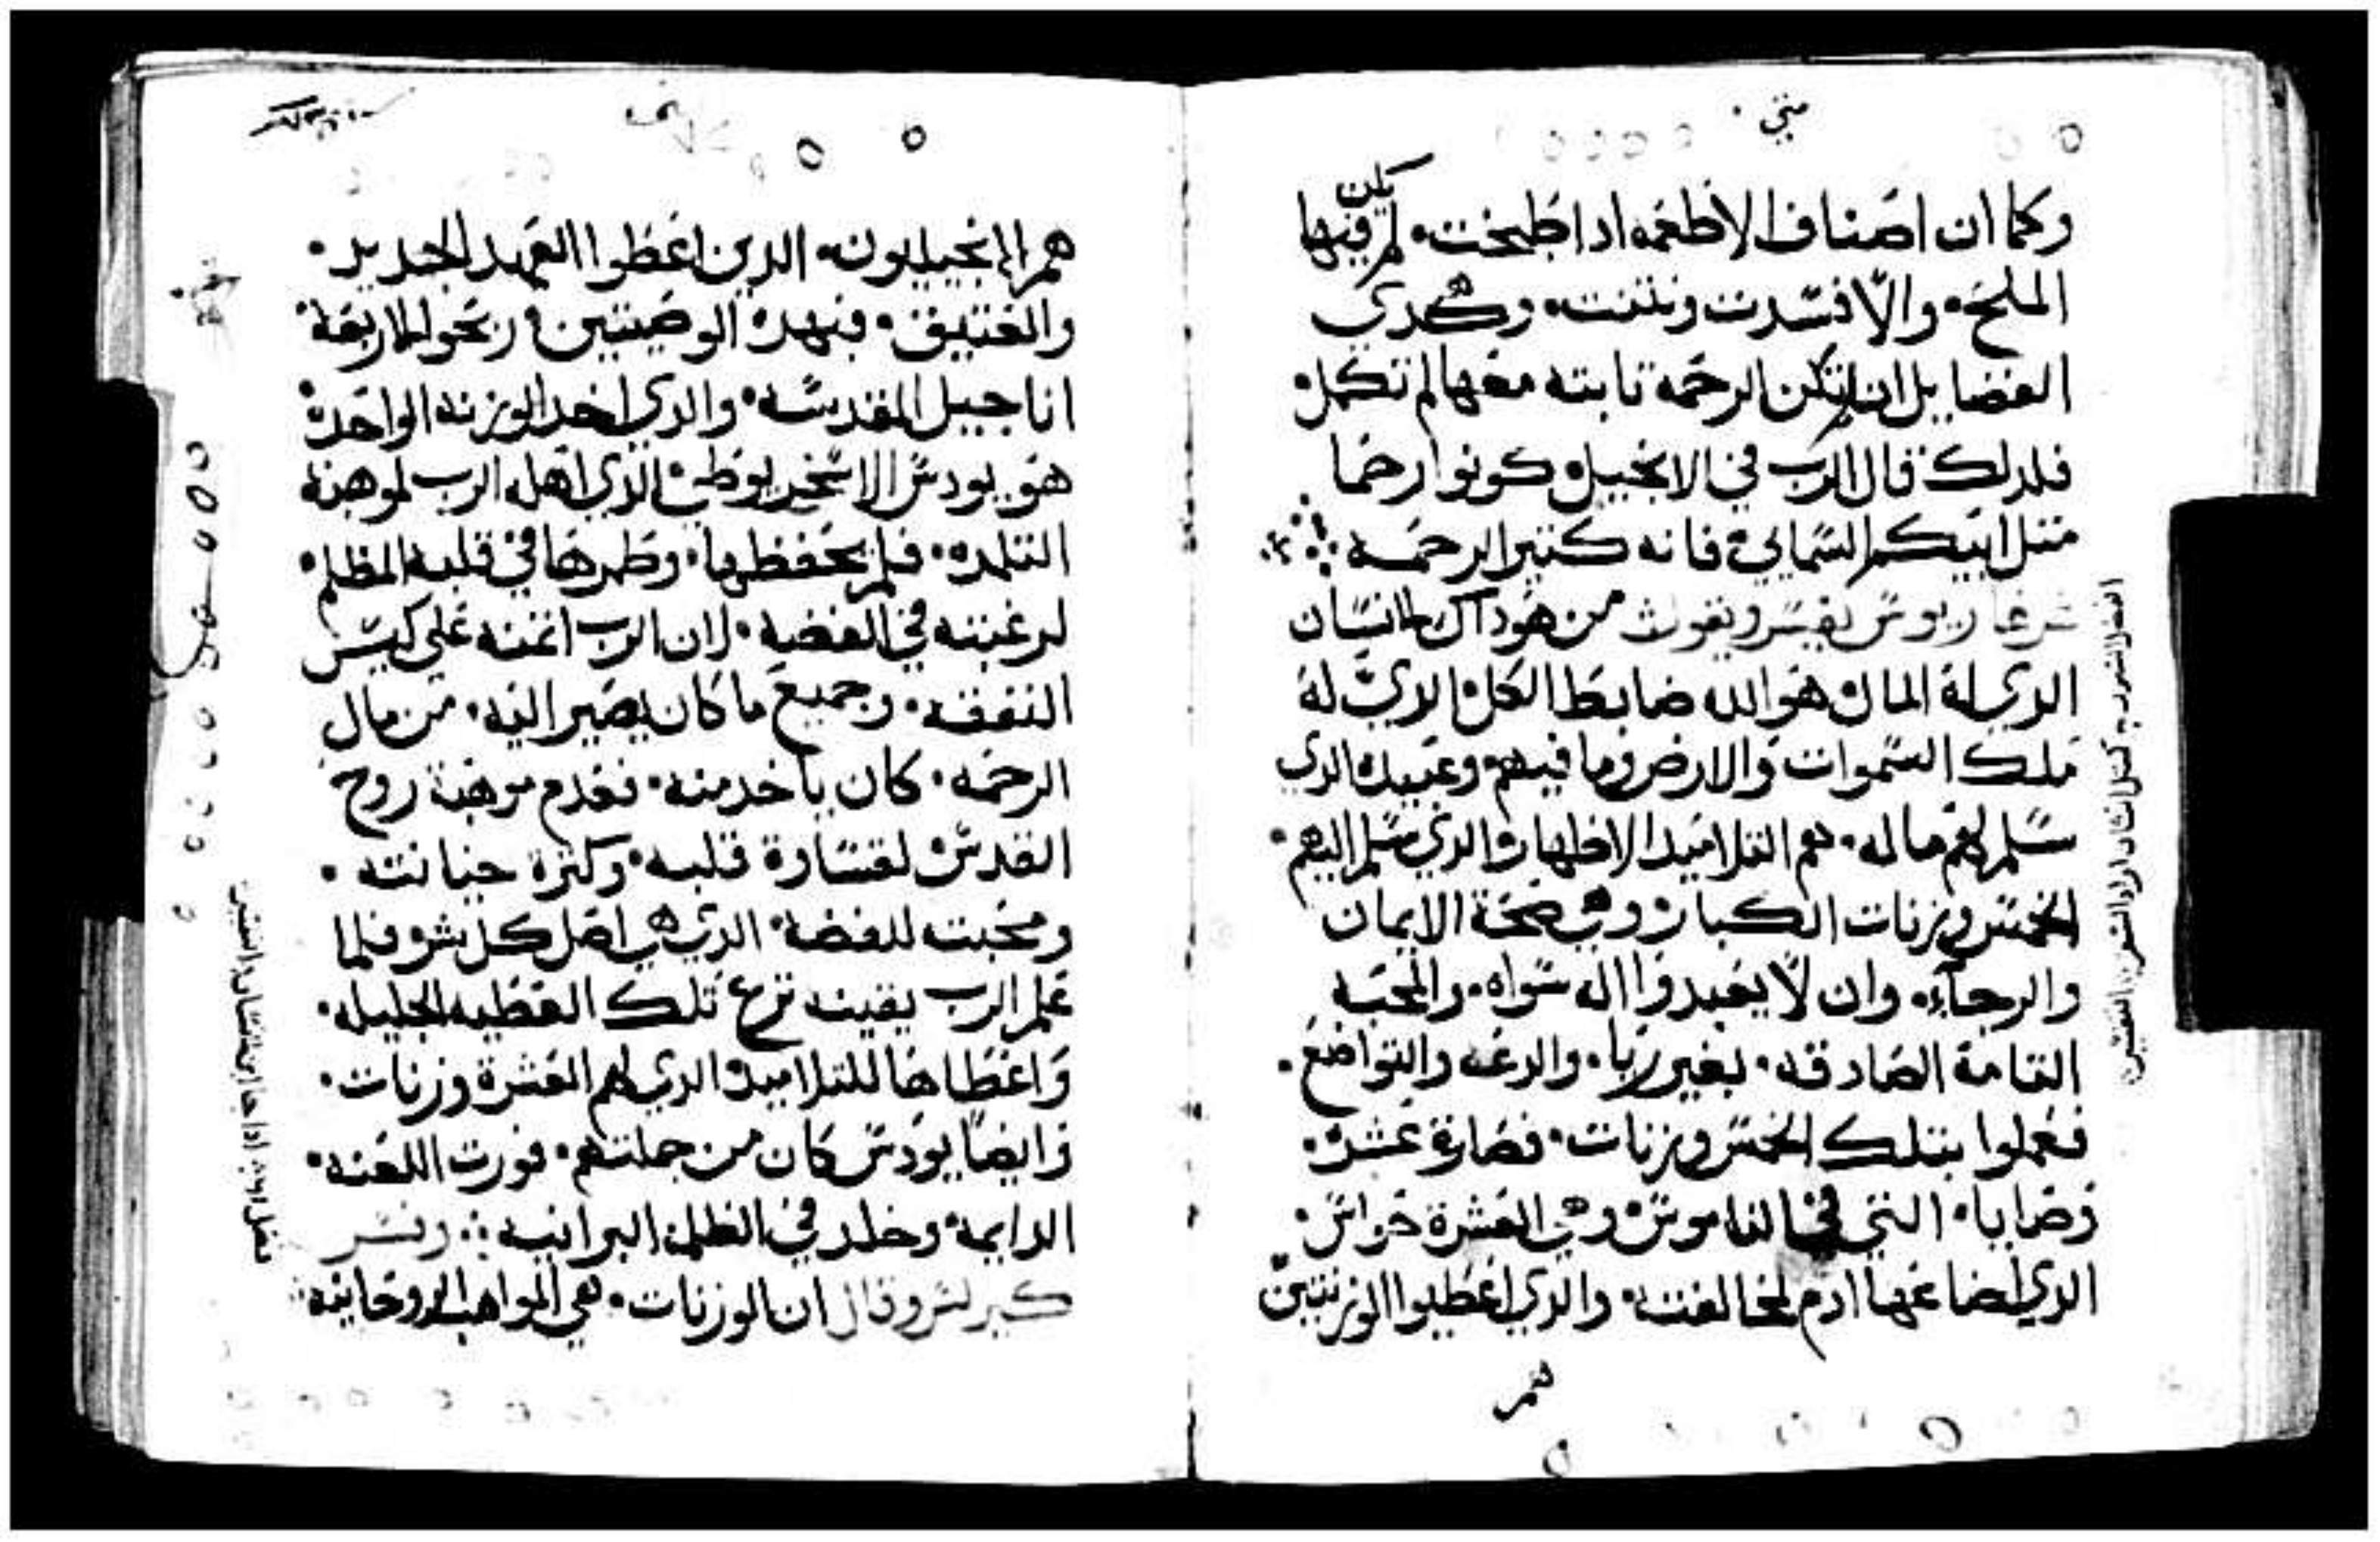 متي
وكما ان اصناف الاطعمه ادا طبخت. لم يكن فيها
الملح. والا فسدت ونتنت. وهكدي
الفضايل ان لم تكن الرحمة تابته معها لم تكمل
فلدلك قال الرب في الانجيل كونوا رحما
متل ابيكم السماي فانه كتير الرحمه
يفسر ويقول من هو داك الانسان
الدي له المال هو الله ضابط الكل الدي له
ملك السموات والارض وما فيهم وعبيده الدي
سلم لهم ماله. هم التلاميد الاطهار والدي سلم اليهم.
الخمس وزنات الكبار وهي صحة الايمان
والرجاء. وان لا يعبدوا اله سواه. والمحبه
التامة الصادقه. بغير ريا. والدعه والتواضع.
فعملوا بتلك الخمس وزنات. فصارة عشر.
وصايا. التي في الناموس وهي العشرة حواس.
الدي اضاعها ادم لمخالفته. والدي اعطيوا الوزنتين
هم
هم الانجيليون. الدين اعطوا العهد الجديد.
والعتيق. فبهده الوصيتين ربحوا الاربعة
اناجيل المقدسه. والدي اخد الوزنه الواحده
هو يودس الاسخريوطي الدي اهله الرب لموهبة
التلمده. فلم يحفظها. وطمرها في قلبه المظلم.
لرغبته في الفضه. لان الرب اتمنه علي كيس
النفقه. وجميع ما كان يصير اليه. من مال
الرحمه. كان ياخد منه. فعدم موهبة روح
القدس لقساوة قلبه. وكترة خيانته.
ومحبت للفضة. الدي هي اصل كل شر فلما
علم الرب يقينه نزع تلك العطيه الجليله.
واعطاها للتلاميد الدي لهم العشرة وزنات.
وايضا يودس كان من جملتهم. فورت اللعنه.
الدايمة وخلد في الظلمة البرانيه وفسر
كيرلس وقال ان الوزنات. هي المواهب الروحانيه